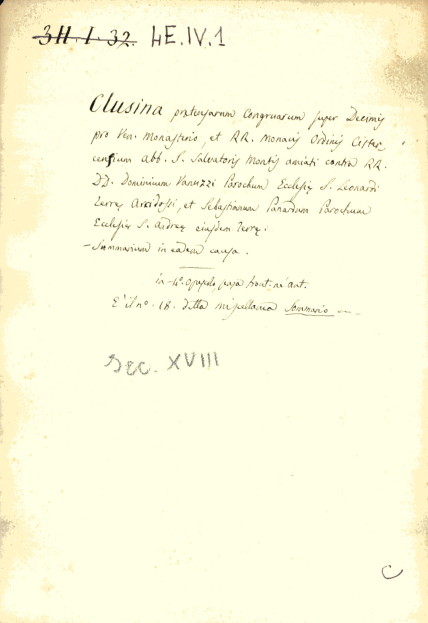 3H.I.32. LE.IV.1
Clusina prætensarum Congruarum super Decimis
pro Ven. Monasterio, et RR. Monacis Ordinis Cister
censium Abb. S. Salvatoris Montis amiati contra RR.
DD. Dominicum Vanuzzi Parochum Ecclesię S. Leonardi
Terrę Arcidossi, et Sebastianum Panardum Parochum
Ecclesię S. Andreę ejusdem Terrę.
- Summarium in eadem causa.
in-4º. Opuscolo senza front. nè ant.
E' il nº. 18. della miscellanea Seminario
Sec. XVIII